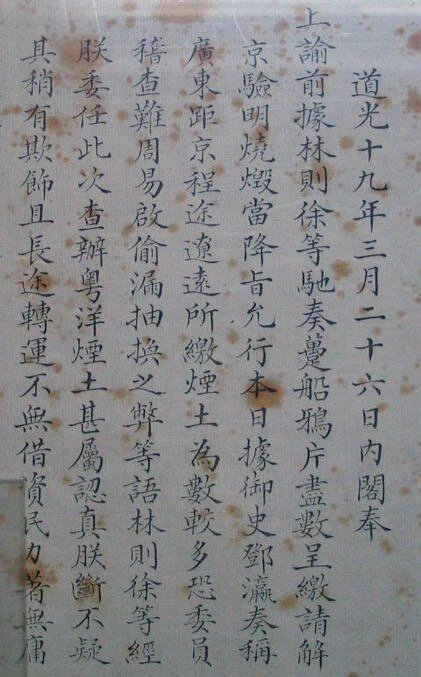 道光十九年三月二十六日内閣奉
上諭前據林則徐等馳奏躉船鴉片盡數呈繳請解
京驗明燒燬當降旨允行本日據御史鄧瀛奏稱
廣東距京程途遼遠所繳煙土為數較多恐委員
稽查難周易啟偷漏抽換之弊等語林則徐等經
朕委任此次查辦粤洋煙土甚屬認真朕斷不疑
其稍有欺飾且長途轉運不無借資民力著無庸